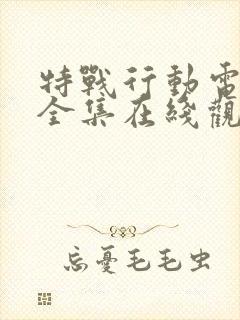 特戰行動電
全集在綫觀
忘憂毛毛虫